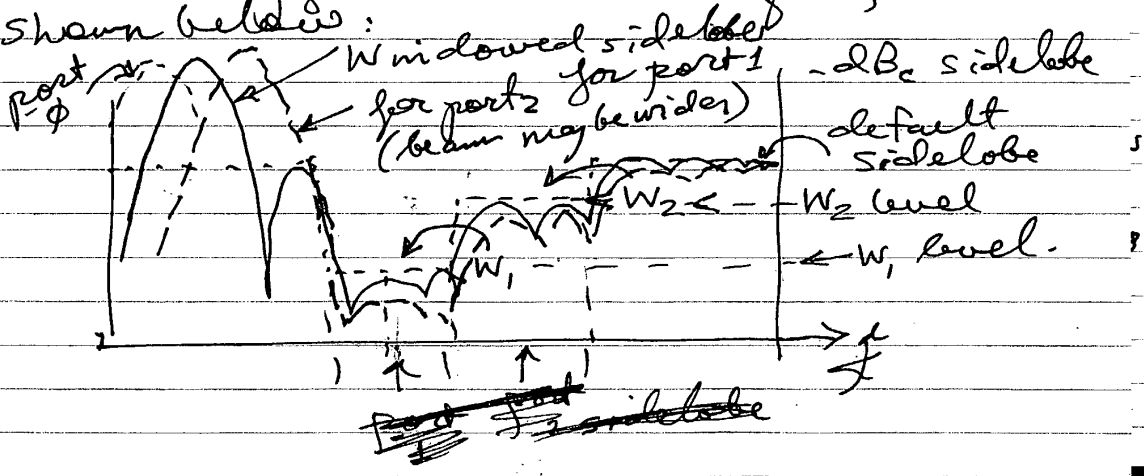 shown below:
Windowed sidelobe
for port 1
for port 2
(beam may be wider)
port
φ
-dBc sidelobe
default
sidelobe
W2 < - - - W2 level
W1
W1 level.
f
port
sidelobe